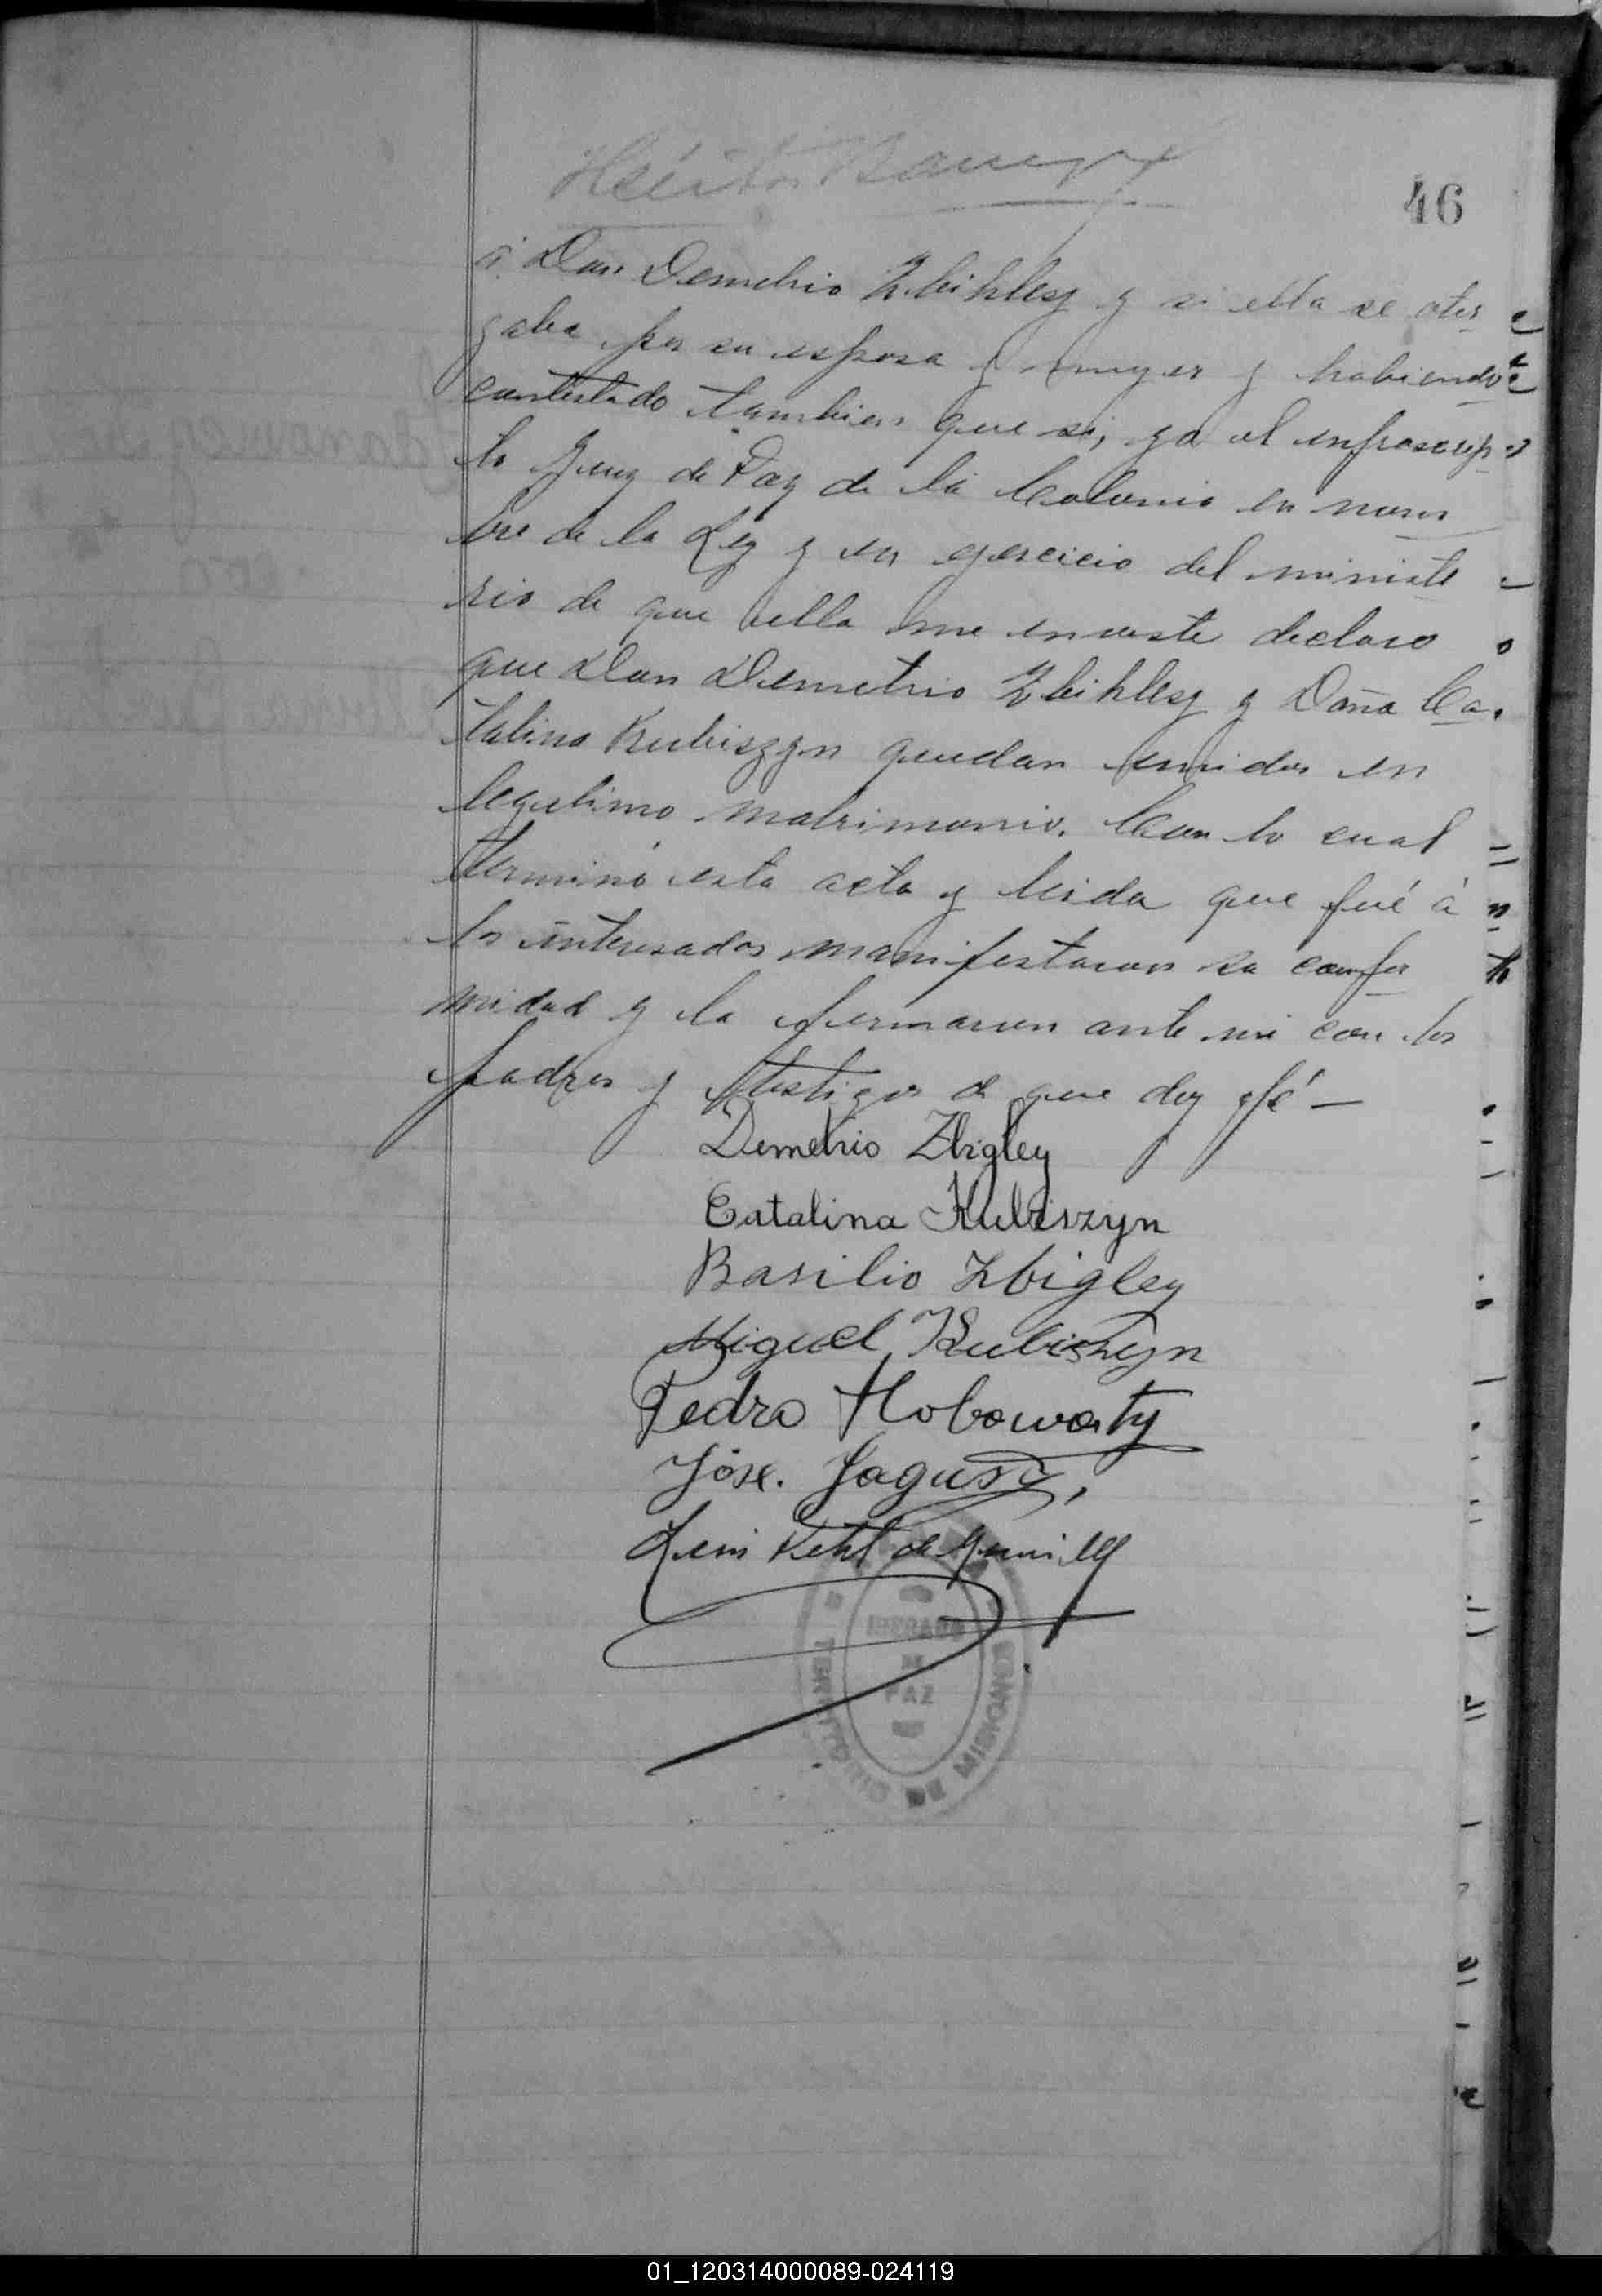 46
á Don Demetrio Zbihley y si ella se otor
gaba por su esposa y muger y habiendo
contestado tambien que si, yo el infrascrip
to Juez de Paz de la Colonia en nom
bre de la Ley y en ejercicio del ministe
rio de que ella me inviste declaro
que Don Demetrio Zbihley y Doña Ca
talina Kubiszyn quedan unidos en
legitimo matrimonio. Con lo cual
terminó esta acta y leida que fué á
los interesados manifestaron su confor
midad y la firmaron ante mi con los
padres y testigos de que doy fé —
Demetrio Zbigley
Catalina Kubiszyn
Basilio Zbigley
Miguel Kubiszyn
Pedro Holowaty
José. Jagusz,
Kehl de
JUZGADO
DE
PAZ
TERRITORIO DE MISIONES
01_120314000089-024119